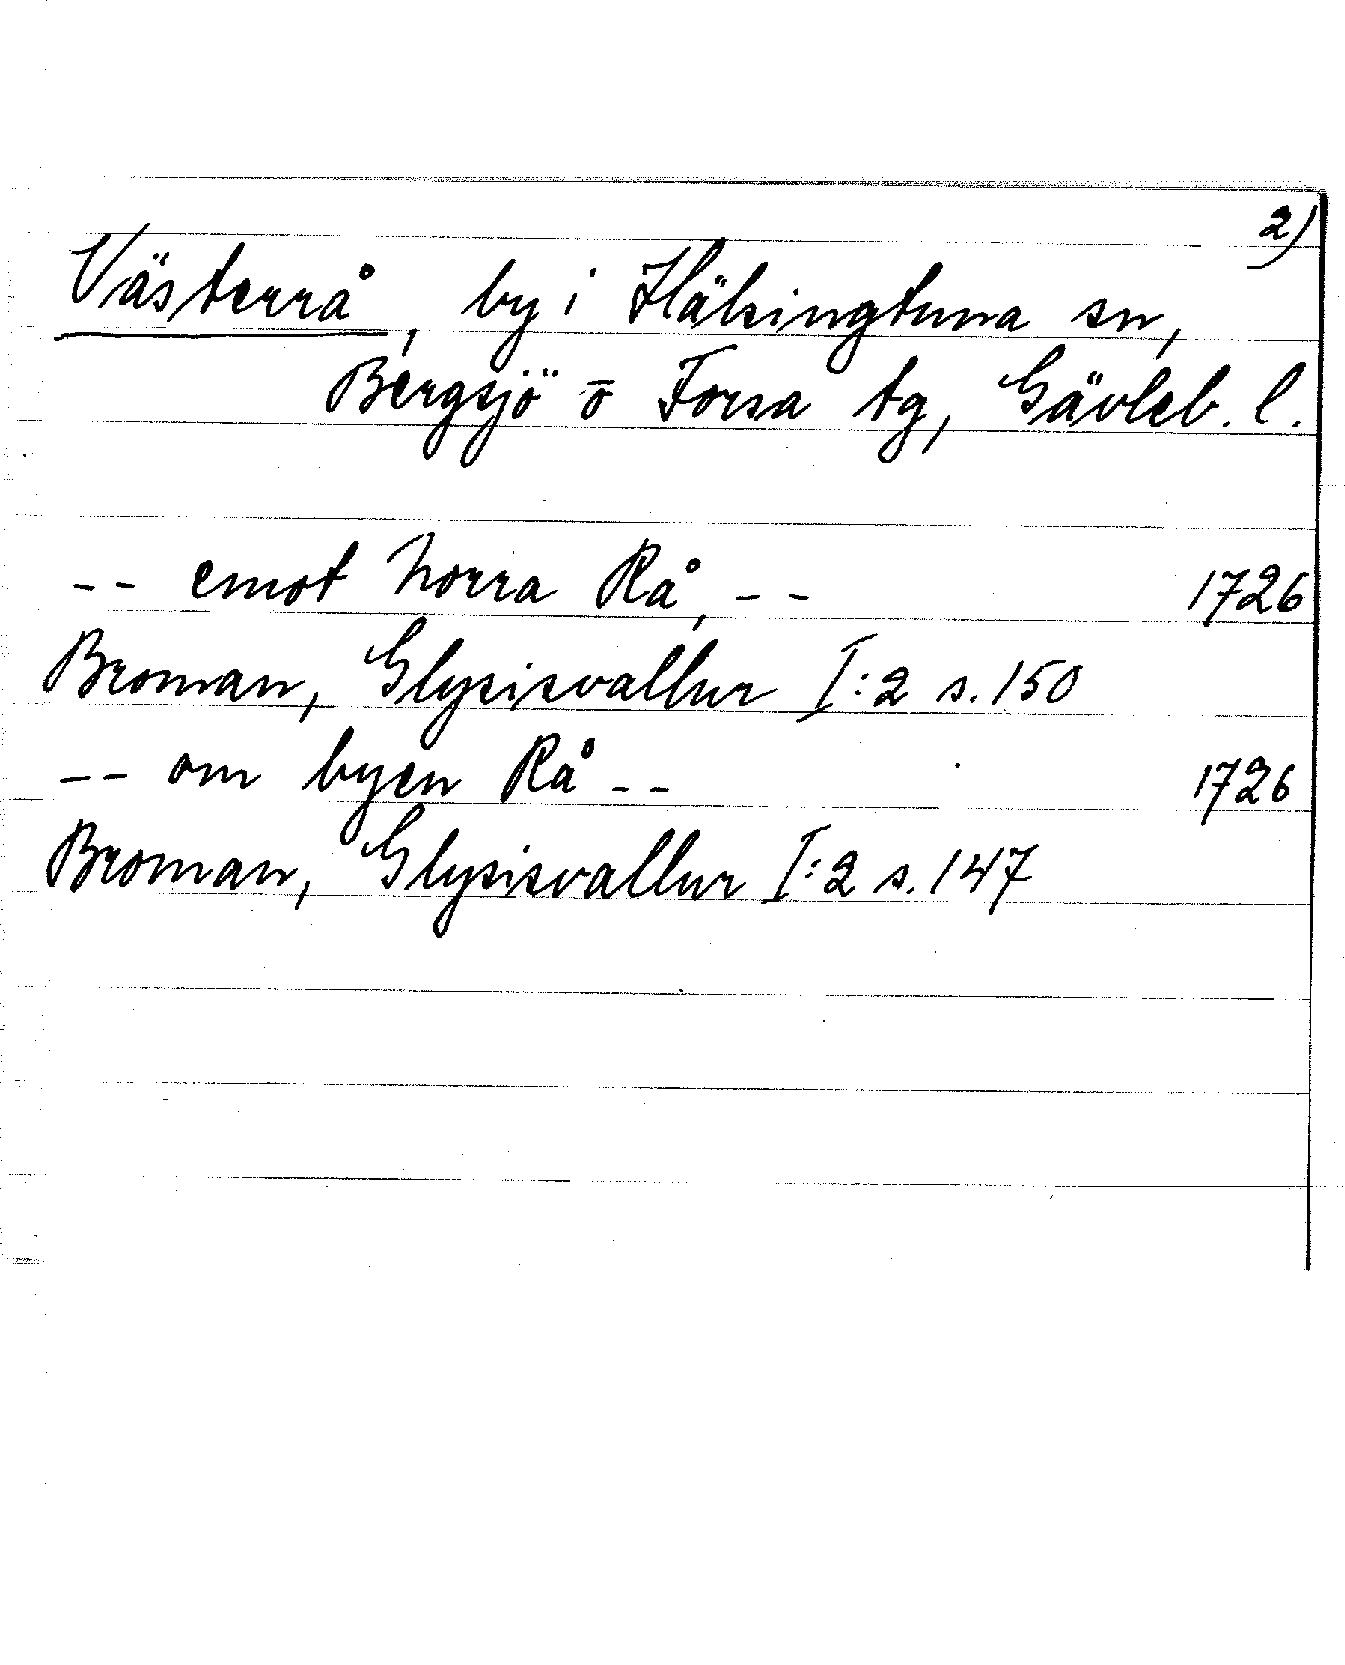 2)
Västerrå, by i Hälsingtuna sn,
Bergsjö o Forsa tg, Gävleb. l.
-- emot Norra Rå, -- 1726
Broman, Glysisvallur I:2 s. 150
-- om byen Rå -- 1726
Broman, Glysisvallur I:2 s. 147